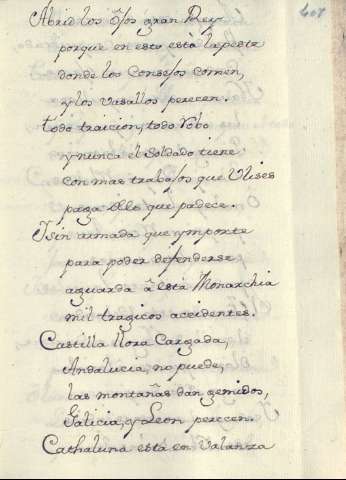 407
Abrid los õjos gran Rey
porque en esto està la peste
donde los Consejos comen,
y los vasallos perecen.
todo traicion, todo robo
y nunca el Soldado tiene
con mas trabajos que Ulises
paga ello que padece.
I sin armada que ymporte
para poder defenderse
aguarda â esta Monarchia
mil tragicos accidentes.
Castilla llora Cargada,
Andalucia, no puede,
las montañas dan gemidos,
Galicia, y Leon perecen.
Cathaluña està en valanza